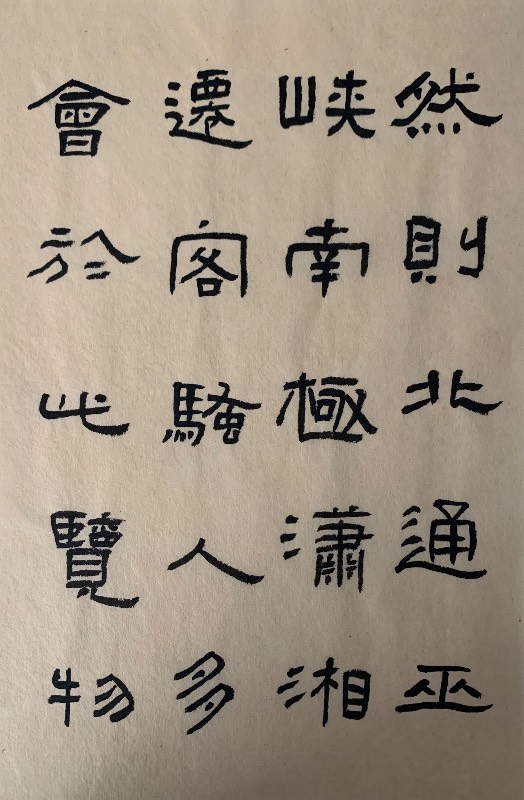 然則北通巫
峽南極瀟湘
遷客騷人多
會於此覽物